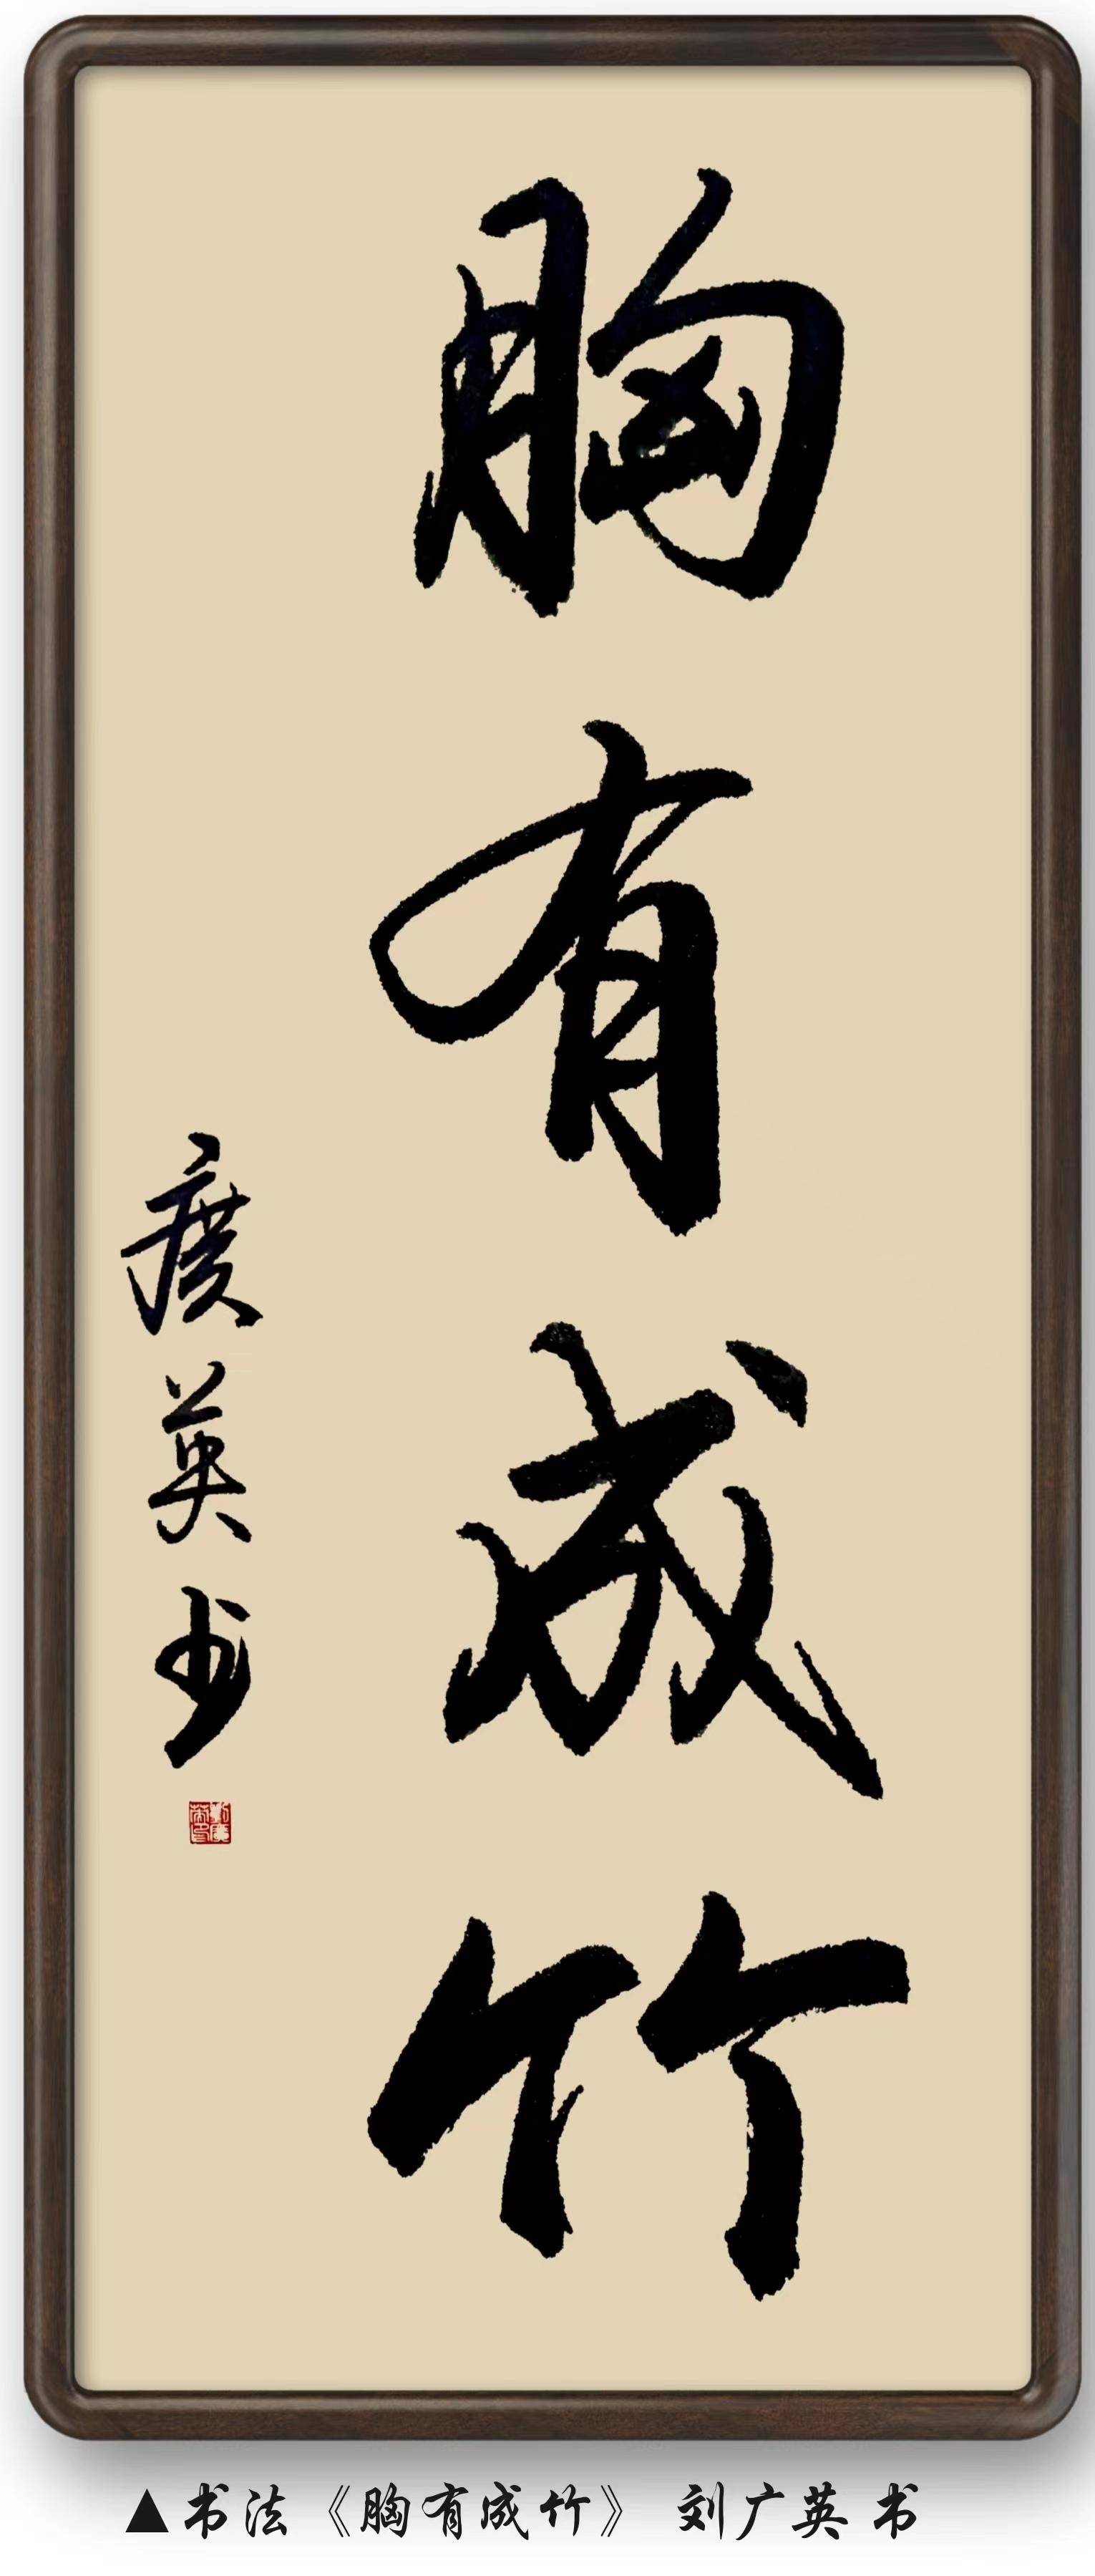 胸有成竹
广英书
▲书法《胸有成竹》 刘广英 书